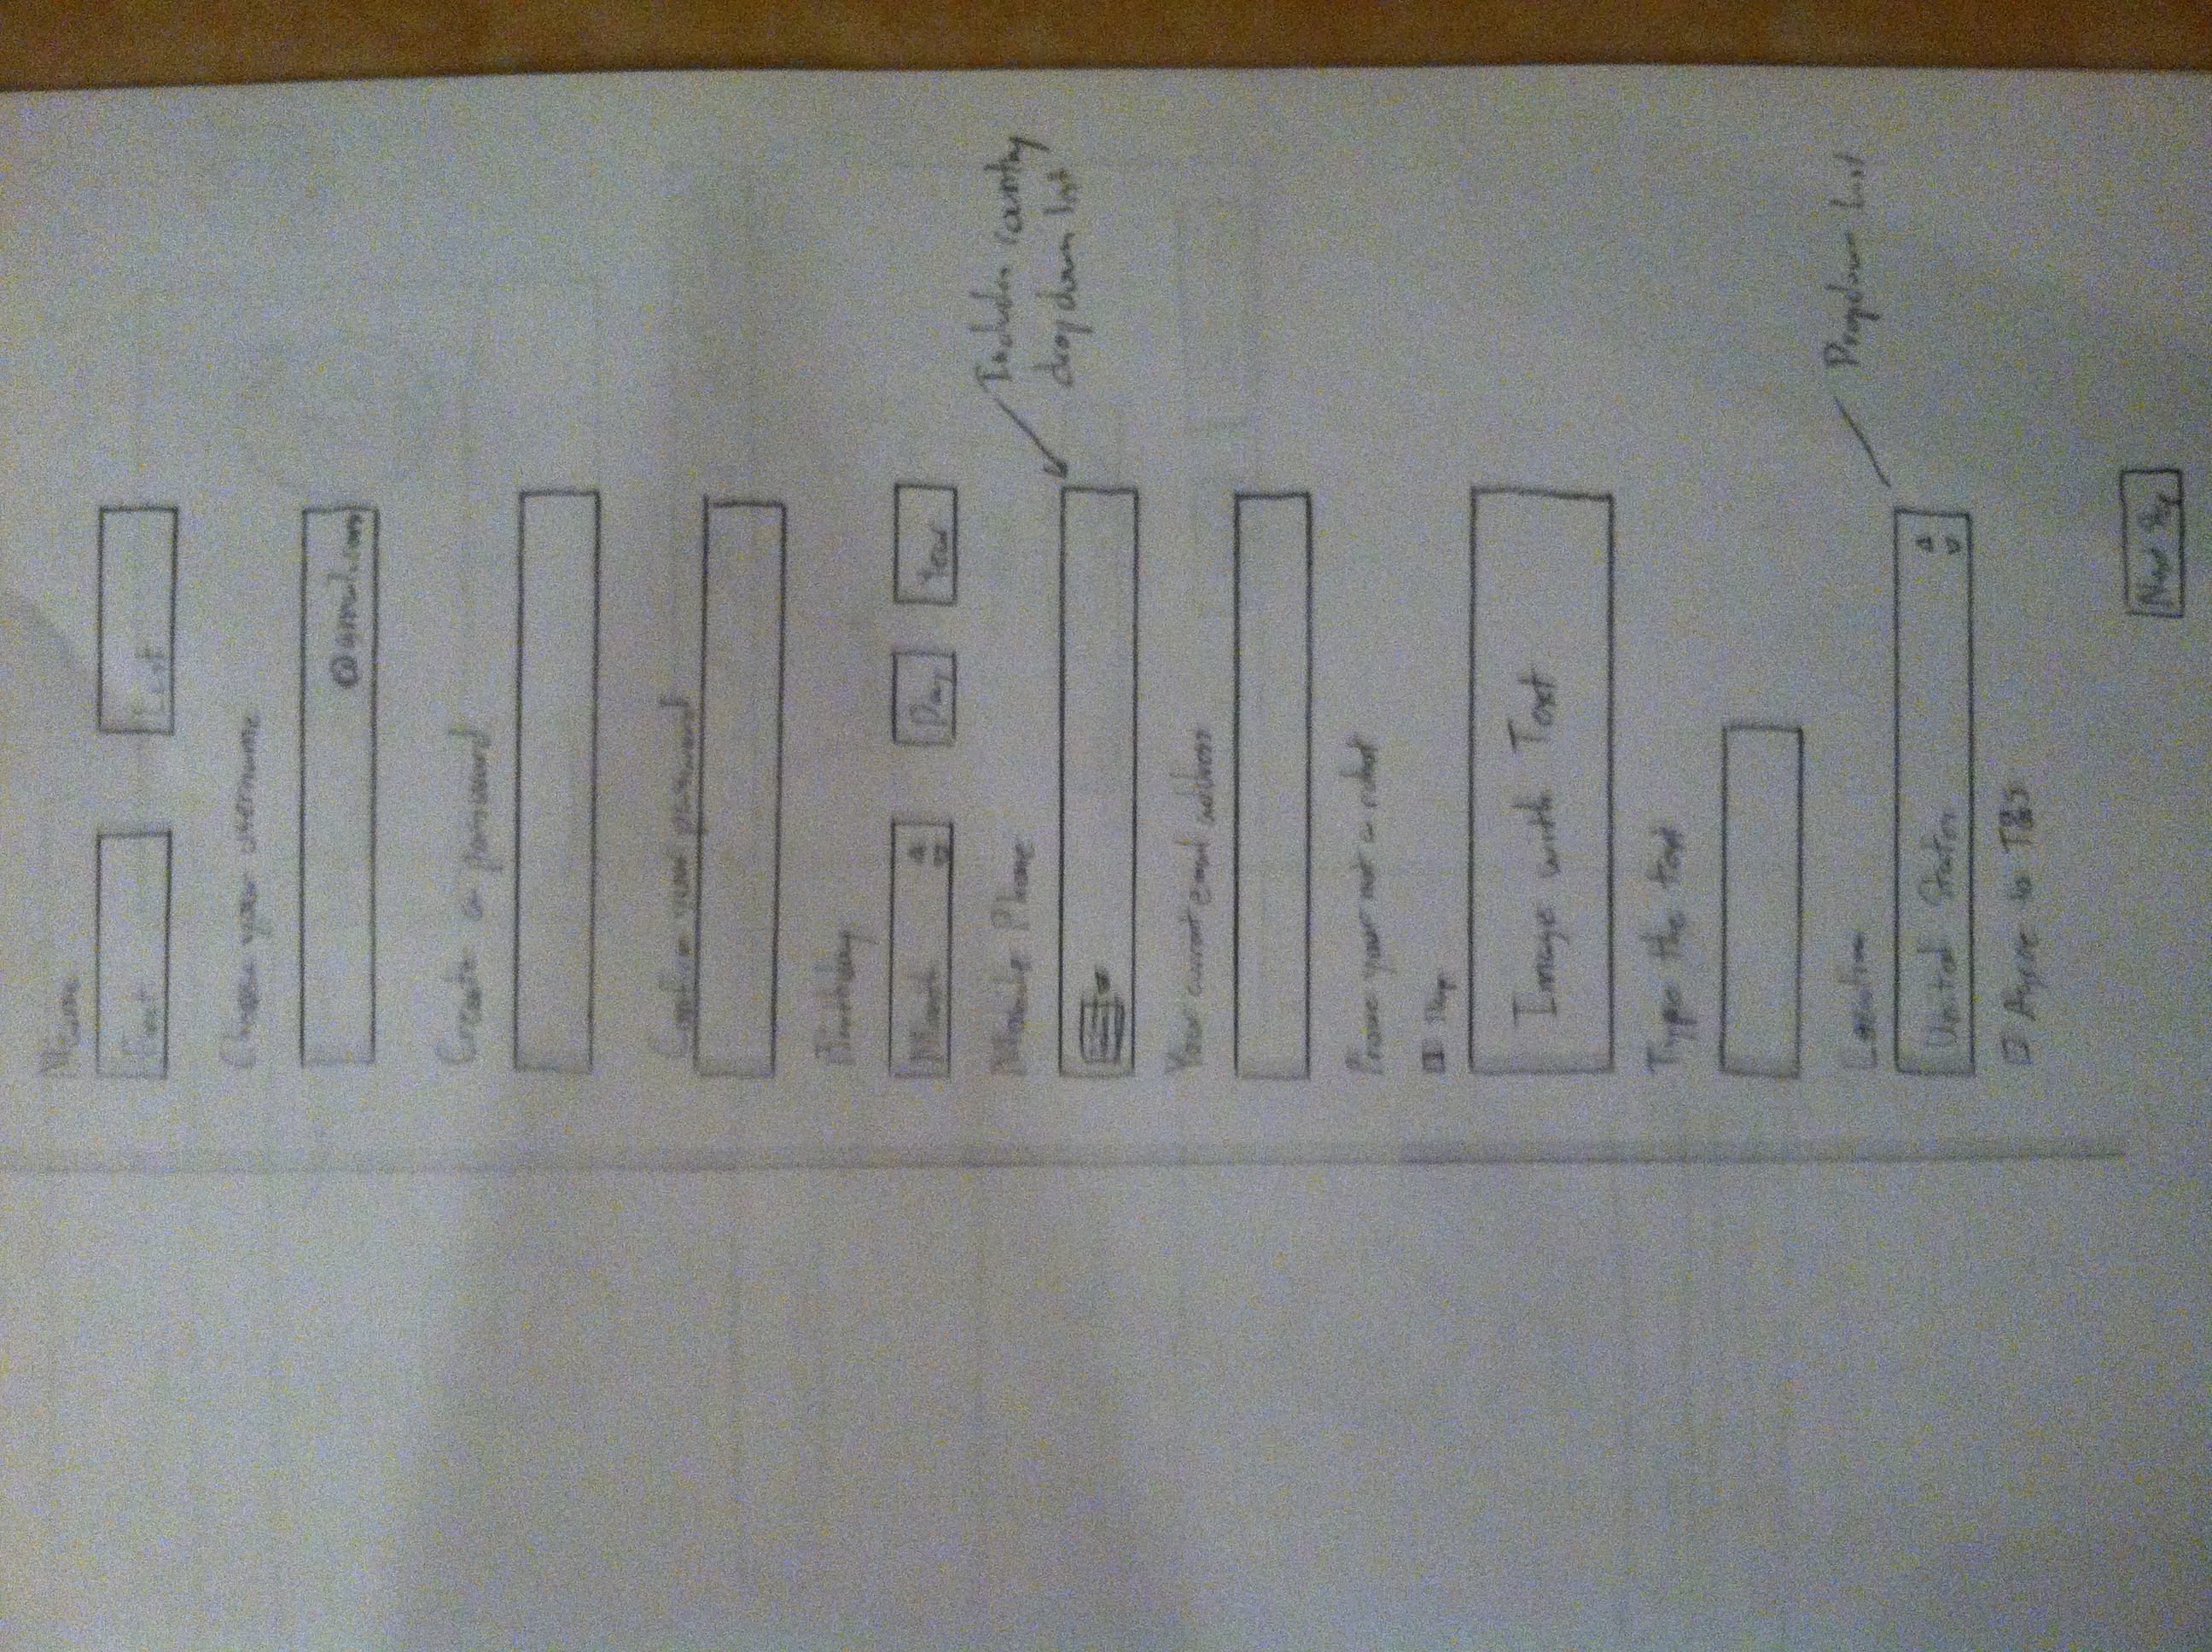 Name
First
Last
Choose your username
@gmail.com
Create a password
Confirm your password
Birthday
Month
Day
Year
Mobile Phone
Includes country
dropdown list
Your current email address
Prove your not a robot
Skip
Image with Text
Type the text
Location
Dropdown List
United States
Agree to T&S
Next Step